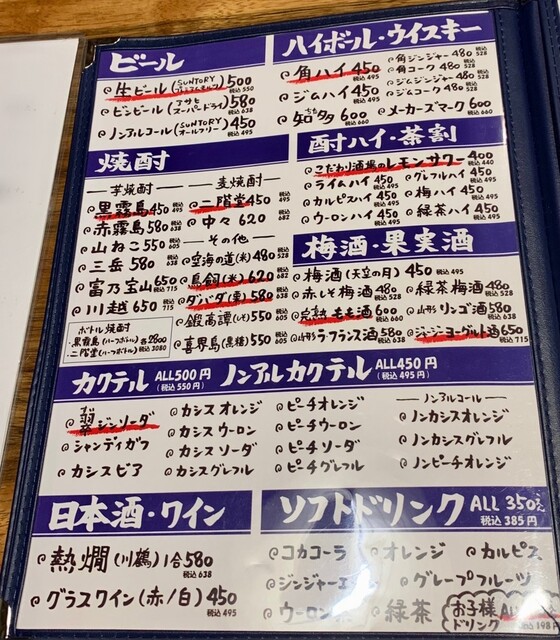 ビール
生ビール(SUNTORY) 500 税込550
ビンビール(アサヒ スーパードライ) 580 税込638
ノンアルコール(SUNTORY オールフリー) 450 税込495
ハイボール・ウイスキー
角ハイ 450 税込495
ジムハイ 450 税込495
知多 600 税込660
角ジンジャー 480 税込528
角コーク 480 税込528
ジムジンジャー 480 税込528
ジムコーク 480 税込528
メーカーズマーク 600 税込660
焼酎
芋焼酎
黒霧島 450 税込495
赤霧島 580 税込638
山ねこ 550 税込605
三岳 580 税込638
富乃宝山 650 税込715
川越 650 税込715
ボトル焼酎
・黒霧島(ハーフボトル) 各2800
・二階堂(ハーフボトル) 税込3080
麦焼酎
二階堂 450 税込495
中々 620 税込682
その他
空海の道(米) 480 税込528
鳥飼(米) 620 税込682
ダバダ(栗) 580 税込638
銀高譚(しそ) 550 税込605
喜界島(黒糖) 550 税込605
酎ハイ・茶割
こだわり酒場のレモンサワー 400 税込440
ライムハイ 450 税込495
グレフルハイ 450 税込495
カルピスハイ 450 税込495
梅ハイ 450 税込495
ウーロンハイ 450 税込495
緑茶ハイ 450 税込495
梅酒・果実酒
梅酒(天空の月) 450 税込495
赤しそ梅酒 480 税込528
緑茶梅酒 480 税込528
完熟もも酒 600 税込660
山形リンゴ酒 580 税込638
山形ラ・フランス酒 580 税込638
ジャージーヨーグルト酒 650 税込715
カクテル ALL500円(税込550円)
ノンアルカクテル ALL450円(税込495円)
翠ジンソーダ
シャンディガフ
カシスビア
カシスオレンジ
カシスウーロン
カシスソーダ
カシスグレフル
ピーチオレンジ
ピーチウーロン
ピーチソーダ
ピーチグレフル
ノンアルコール
ノンカシスオレンジ
ノンカシスグレフル
ノンピーチオレンジ
日本酒・ワイン
熱燗(川鶴)1合 580 税込638
グラスワイン(赤/白) 450 税込495
ソフトドリンク ALL 350円 税込385円
コカコーラ
オレンジ
カルピス
ジンジャーエール
グレープフルーツ
ウーロン
緑茶
お子様ドリンク
税込198